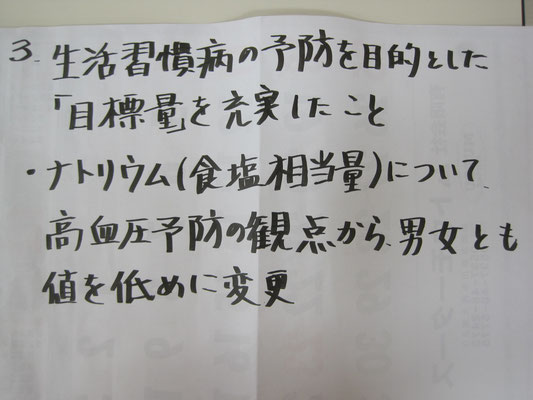 3. 生活習慣病の予防を目的とした
「目標量」を充実したこと
・ナトリウム(食塩相当量)について、
高血圧予防の観点から、男女とも
値を低めに変更